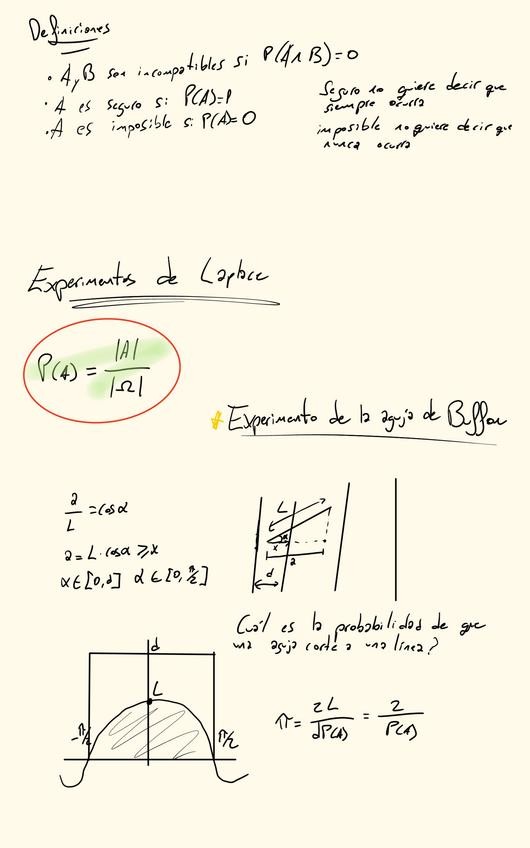 Definiciones
• A y B son incompatibles si P(A∩B)=0
• A es seguro si P(A)=1
• A es imposible si P(A)=0
Seguro no quiere decir que
siempre ocurra
imposible no quiere decir que
nunca ocurra
Experimentos de Laplace
P(A) = |A| / |Ω|
Experimento de la aguja de Buffon
a/L = cosα
a = L·cosα ≥ x
x∈[0,d] α∈[0,π/2]
L
α
x
a
d
Cuál es la probabilidad de que
una aguja corte a una línea?
d
L
-π/2
π/2
π = 2L / dP(A) = 2 / P(A)